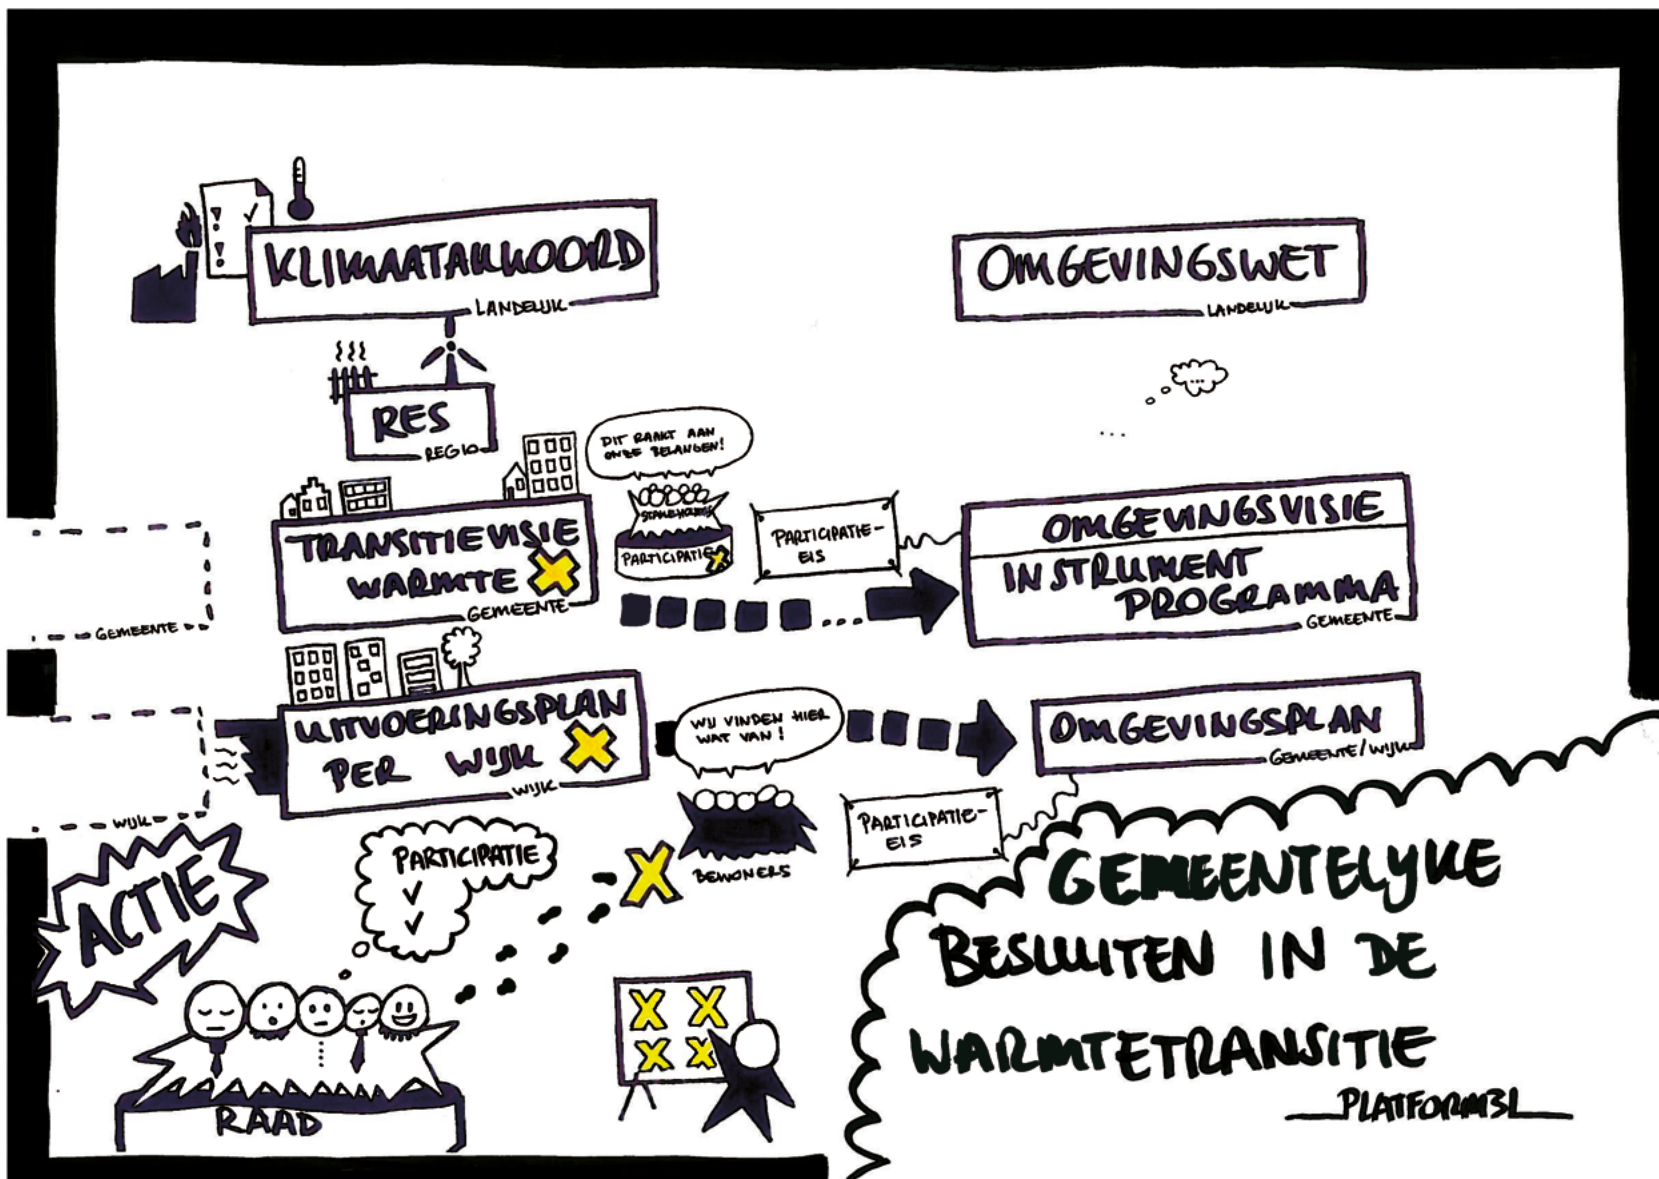 KLIMAATAKKOORD
LANDELIJK
OMGEVINGSWET
LANDELIJK
RES
REGIO
...
...
DIT RAAKT AAN
ONZE BELANGEN!
STAKEHOLDERS
PARTICIPATIE
TRANSITIEVISIE
WARMTE
GEMEENTE
PARTICIPATIE-
EIS
OMGEVINGSVISIE
INSTRUMENT
PROGRAMMA
GEMEENTE
...
GEMEENTE
UITVOERINGSPLAN
PER WIJK
WIJK
WIJ VINDEN HIER
WAT VAN!
OMGEVINGSPLAN
GEMEENTE/WIJK
WIJK
PARTICIPATIE-
EIS
BEWONERS
ACTIE
PARTICIPATIE
RAAD
GEMEENTELYKE
BESLUITEN IN DE
WARMTETRANSITIE
PLATFORM31